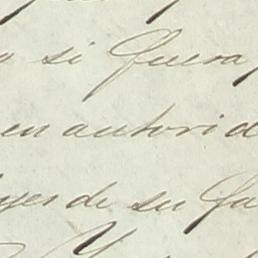 si fuera
en autorid
yes de su fa